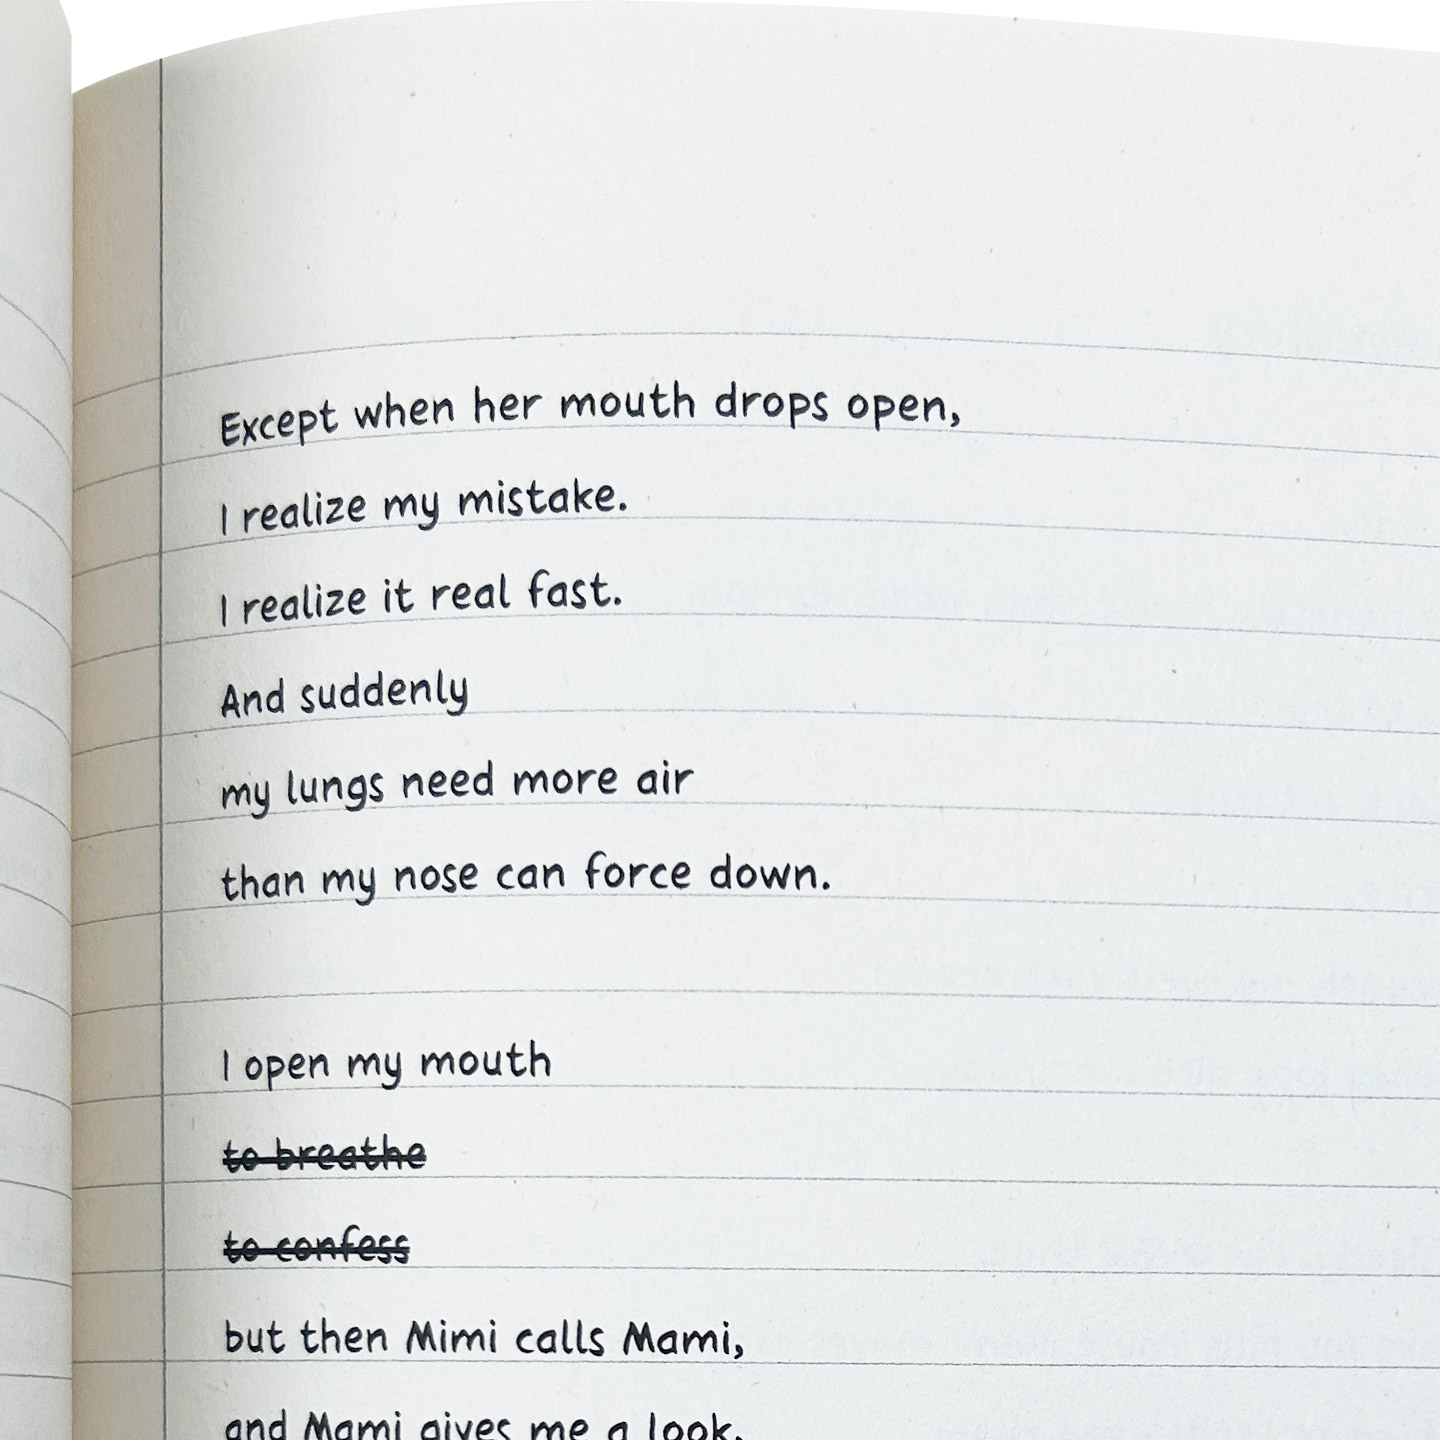 Except when her mouth drops open,
I realize my mistake.
I realize it real fast.
And suddenly
my lungs need more air
than my nose can force down.
I open my mouth
to breathe
to confess
but then Mimi calls Mami,
and Mami gives me a look.